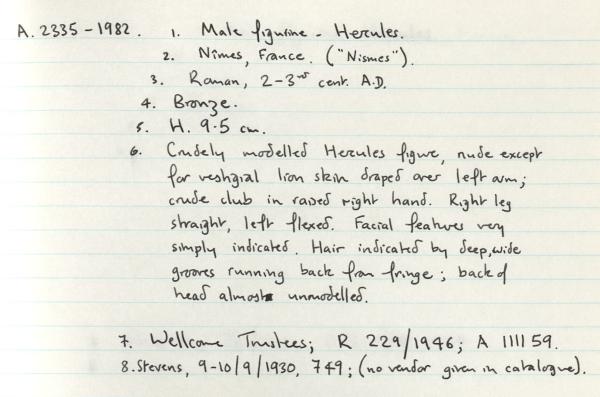 A. 2335-1982. 1. Male figurine - Hercules.
2. Nîmes, France. ("Nismes").
3. Roman, 2-3rd cent. A.D.
4. Bronze.
5. H. 9.5 cm.
6. Crudely modelled Hercules figure, nude except
for vestigial lion skin draped over left arm;
crude club in raised right hand. Right leg
straight, left flexed. Facial features very
simply indicated. Hair indicated by deep, wide
grooves running back from fringe; back of
head almost unmodelled.
7. Wellcome Trustees; R 229/1946; A 111159.
8. Stevens, 9-10/9/1930, 749; (no vendor given in catalogue).